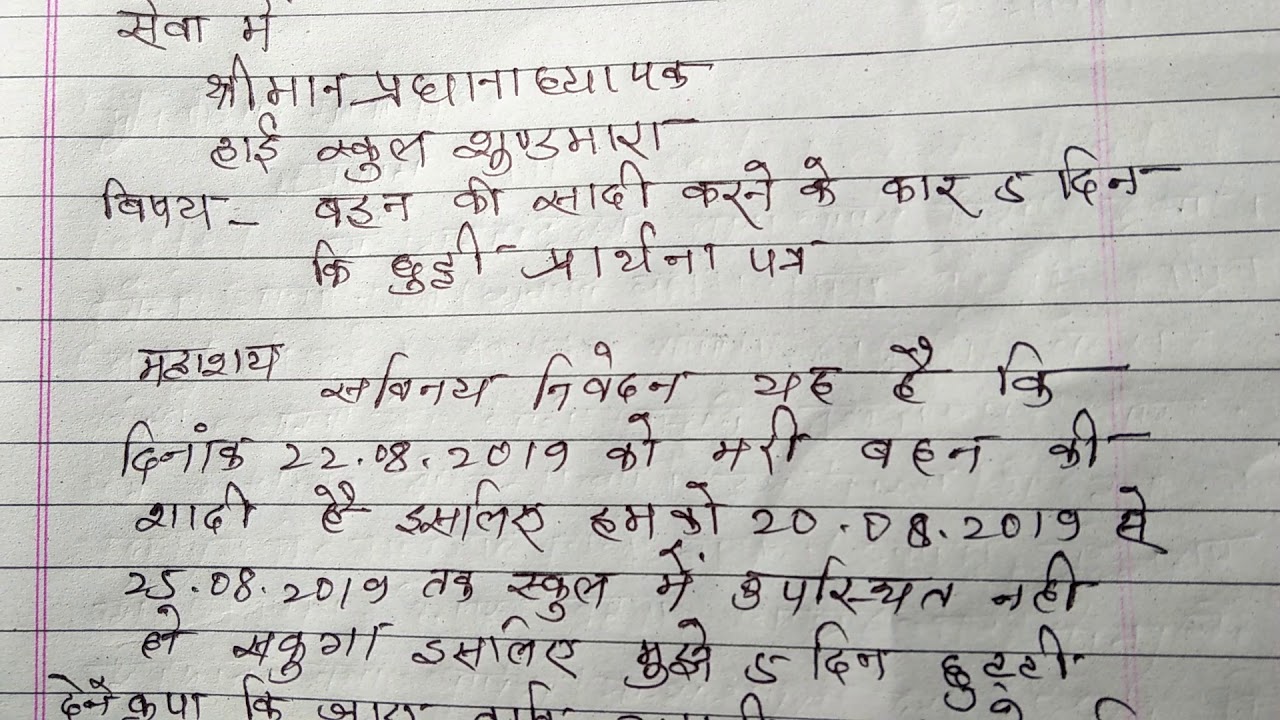 सेवा में
श्रीमान प्रधानाध्यापक
हाई स्कुल शुण्डमारा
विषय - बहन की सादी करने के कार 5 दिन
कि छुट्टी प्रार्थना पत्र
महाशय
सविनय निवेदन यह है कि
दिनांक 22.08.2019 को मेरी बहन की
शादी है इसलिए हमको 20.08.2019 से
25.08.2019 तक स्कुल में उपस्थित नही
हो सकुगा इसलिए मुझे 5 दिन छुट्टी
देने कृपा कि जाए ताकि